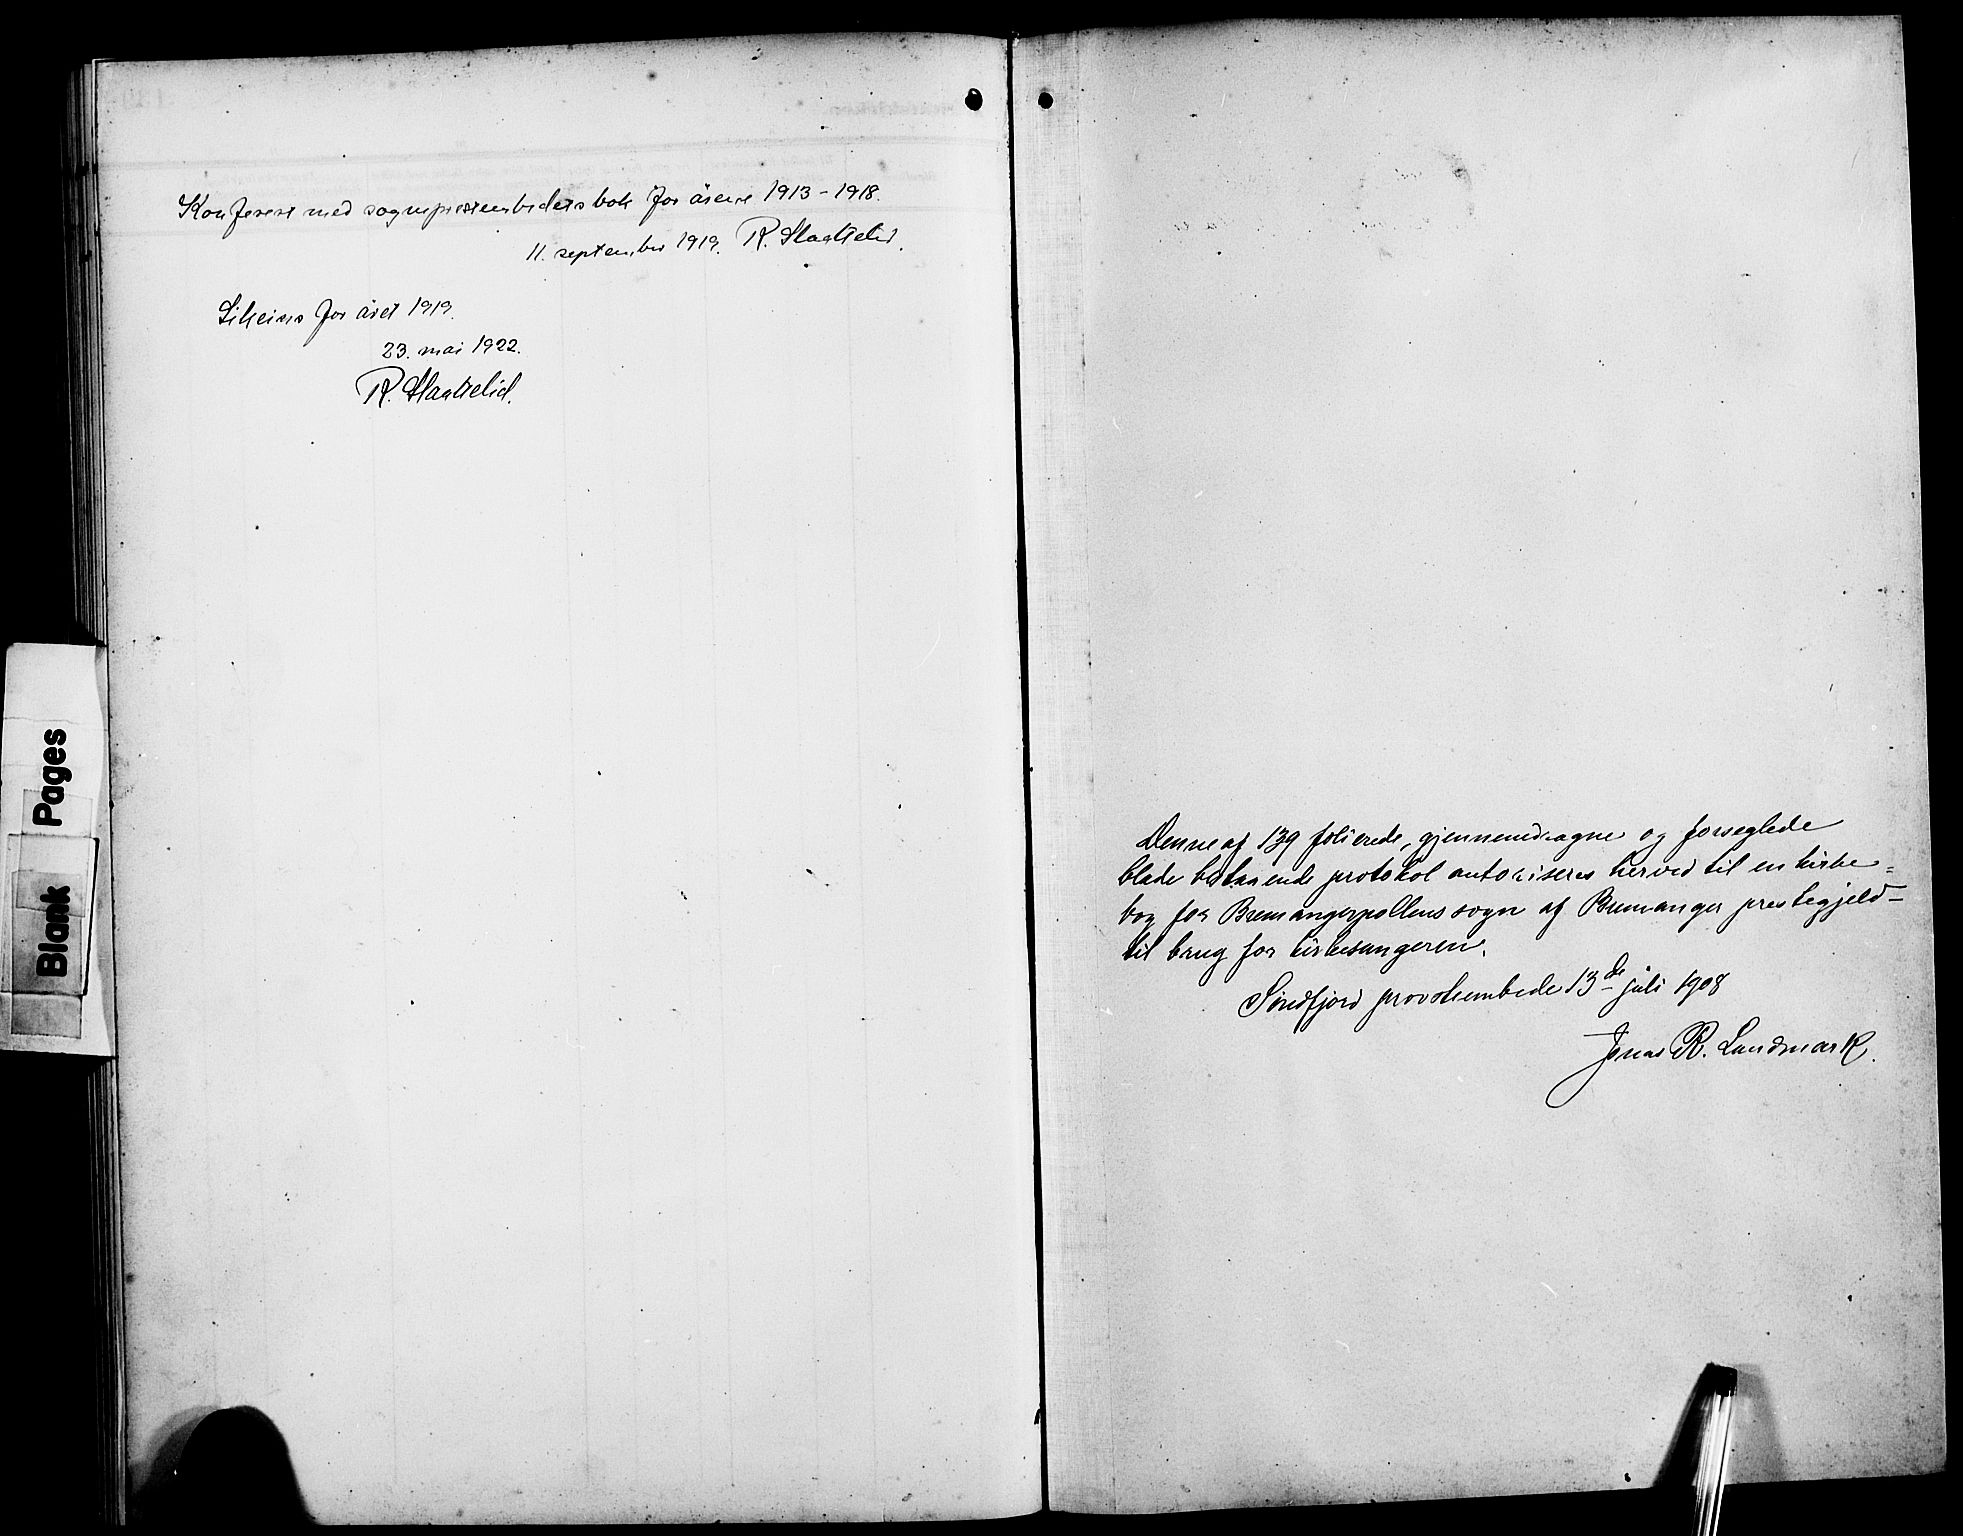 Konferert med sogneprestembedets bok for årene 1913-1918.
11. september 1919. R. Slaattelid.
Likeins for året 1919.
23. mai 1922.
R. Slaattelid.
Denne af 139 folierede, gjennemdragne og forseglede
blade bestaaende protokol autoriseres herved til en kirke=
bog for Bremangerpollens sogn af Bremanger prestegjeld -
til brug for kirkesangeren.
Søndfjord provstembede 13de juli 1908
Jonas R. Landmark.
Blank Pages